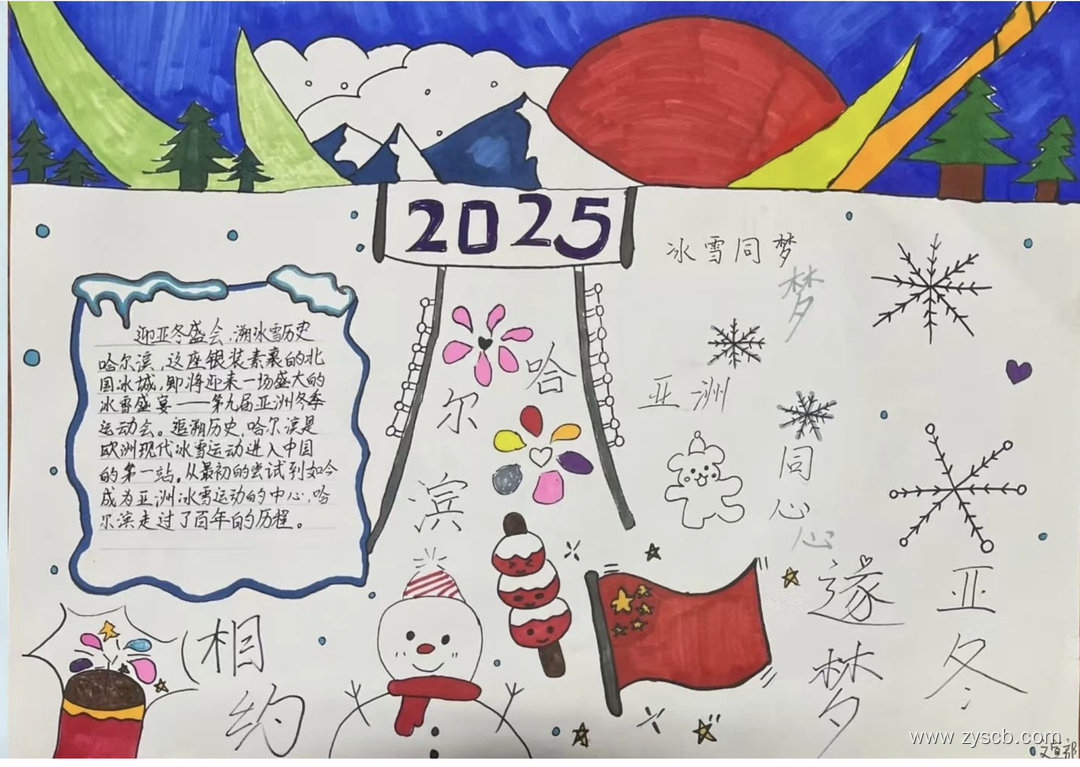 2025
冰雪同梦
梦
迎亚冬盛会，溯冰雪历史
哈尔滨，这座银装素裹的北
国冰城，即将迎来一场盛大的
冰雪盛宴——第九届亚洲冬季
运动会。追溯历史，哈尔滨是
欧洲现代冰雪运动进入中国
的第一站。从最初的尝试到如今
成为亚洲冰雪运动的中心，哈
尔滨走过了百年的历程。
哈
尔
滨
亚洲
同
心
心
相
约
遂
梦
亚
冬
www.zyscb.com